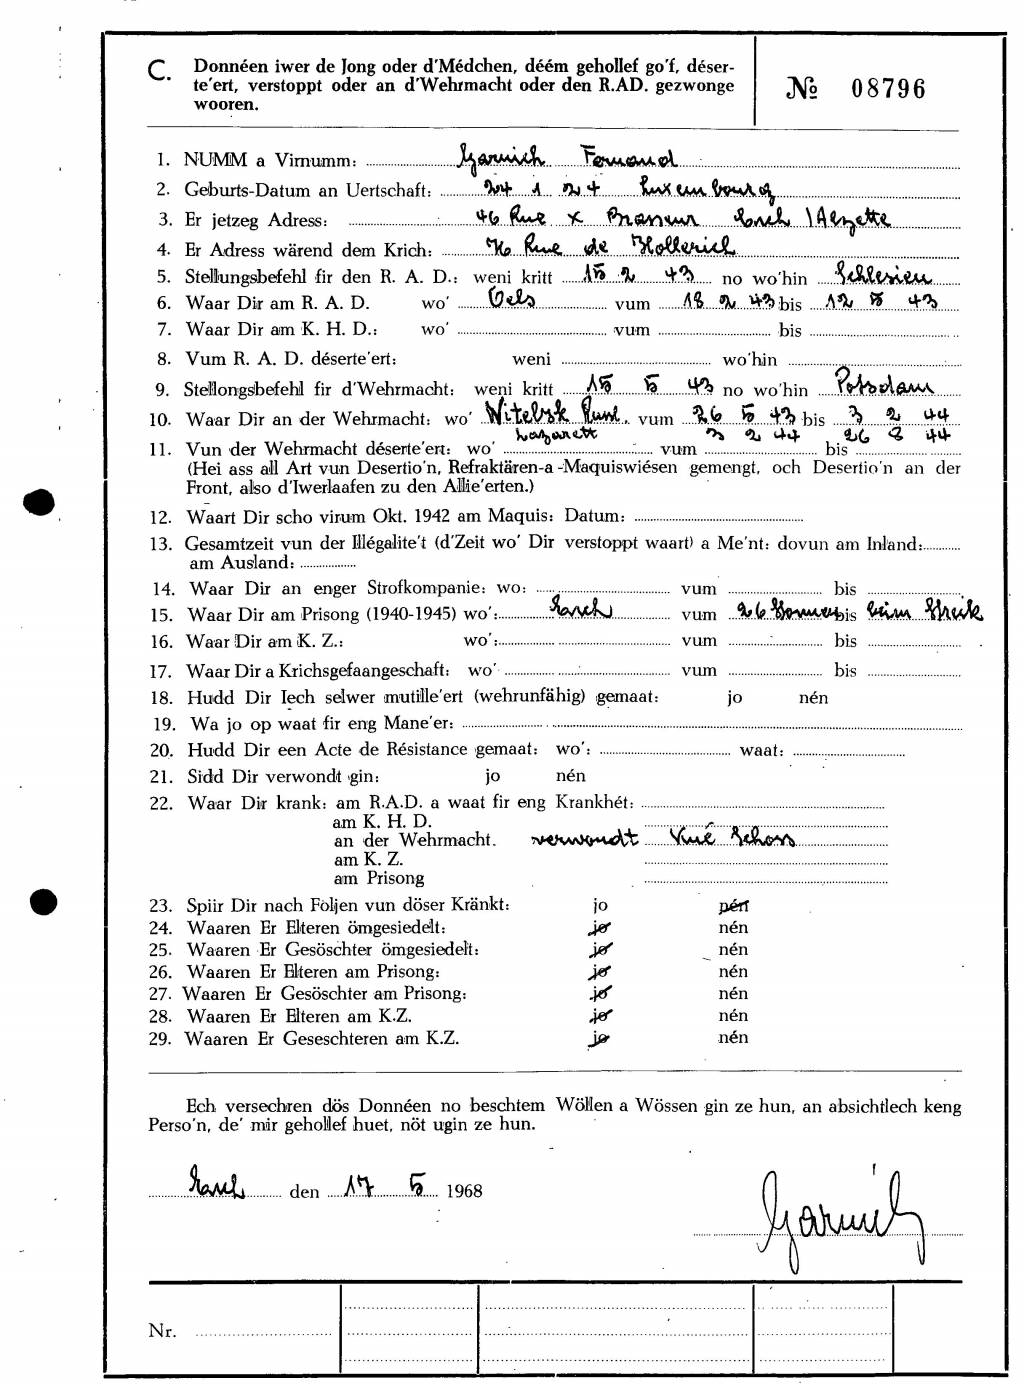 C. Donnéen iwer de Jong oder d'Médchen, déém gehollef go'f, déser-
te'ert, verstoppt oder an d'Wehrmacht oder den R.AD. gezwonge
wooren.
№ 08796
1. NUMM a Virnumm: Garnich Fernand
2. Geburts-Datum an Uertschaft: 24 1 24 Luxembourg
3. Er jetzeg Adress: 46 Rue X Brasseur Esch /Alzette
4. Er Adress wärend dem Krich: Rue de Hollerich
5. Stellungsbefehl fir den R. A. D.: weni kritt 15 2 43 no wo'hin Schlesien
6. Waar Dir am R. A. D. wo' Oels vum 18 2 43 bis 12 5 43
7. Waar Dir am K. H. D.: wo' vum bis
8. Vum R. A. D. déserte'ert: weni wo'hin
9. Stellongsbefehl fir d'Wehrmacht: weni kritt 15 5 43 no wo'hin Potsdam
10. Waar Dir an der Wehrmacht: wo' Witebsk vum 26 5 43 bis 3 2 44
Lazarett 3 2 44 26 8 44
11. Vun der Wehrmacht déserte'ert: wo' vum bis
(Hei ass all Art vun Desertio'n, Refraktären-a -Maquiswiésen gemengt, och Desertio'n an der
Front, also d'Iwerlaafen zu den Allie'erten.)
12. Waart Dir scho virum Okt. 1942 am Maquis: Datum:
13. Gesamtzeit vun der Illégalite't (d'Zeit wo' Dir verstoppt waart) a Me'nt: dovun am Inland:
am Ausland:
14. Waar Dir an enger Strofkompanie: wo: vum bis
15. Waar Dir am Prisong (1940-1945) wo': Esch vum 26 bis beim Streik
16. Waar Dir am K. Z.: wo': vum bis
17. Waar Dir a Krichsgefaangeschaft: wo' vum bis
18. Hudd Dir Iech selwer mutille'ert (wehrunfähig) gemaat: jo nén
19. Wa jo op waat fir eng Mane'er:
20. Hudd Dir een Acte de Résistance gemaat: wo': waat:
21. Sidd Dir verwondt gin: jo nén
22. Waar Dir krank: am R.A.D. a waat fir eng Krankhét:
am K. H. D.
an der Wehrmacht. verwondt Knié Schoss
am K. Z.
am Prisong
23. Spiir Dir nach Foljen vun döser Kränkt: jo nén
24. Waaren Er Elteren ömgesiedelt: jo nén
25. Waaren Er Gesöschter ömgesiedelt: jo nén
26. Waaren Er Elteren am Prisong: jo nén
27. Waaren Er Gesöschter am Prisong: jo nén
28. Waaren Er Elteren am K.Z. jo nén
29. Waaren Er Geseschteren am K.Z. jo nén
Ech versechren dös Donnéen no beschtem Wöllen a Wössen gin ze hun, an absichtlech keng
Perso'n, de' mir gehollef huet, nöt ugin ze hun.
Esch den 17 5 1968
Garnich
Nr.